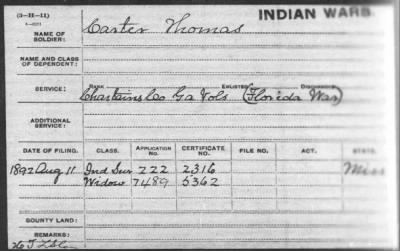 (3-II-11)
INDIAN WARS.
NAME OF SOLDIER: Carter Thomas
NAME AND CLASS OF DEPENDENT:
SERVICE: RANK ENLISTED DISCHARGED
Chastains Co Ga Vols (Florida War)
ADDITIONAL SERVICE:
DATE OF FILING. CLASS. APPLICATION NO. CERTIFICATE NO. FILE NO. ACT. STATE.
1892 Aug 11 Ind Sur 222 2316 Miss
Widow 7489 5362
BOUNTY LAND:
REMARKS: